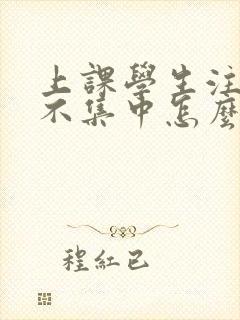 上課學生注
不集中怎麼
程紅已